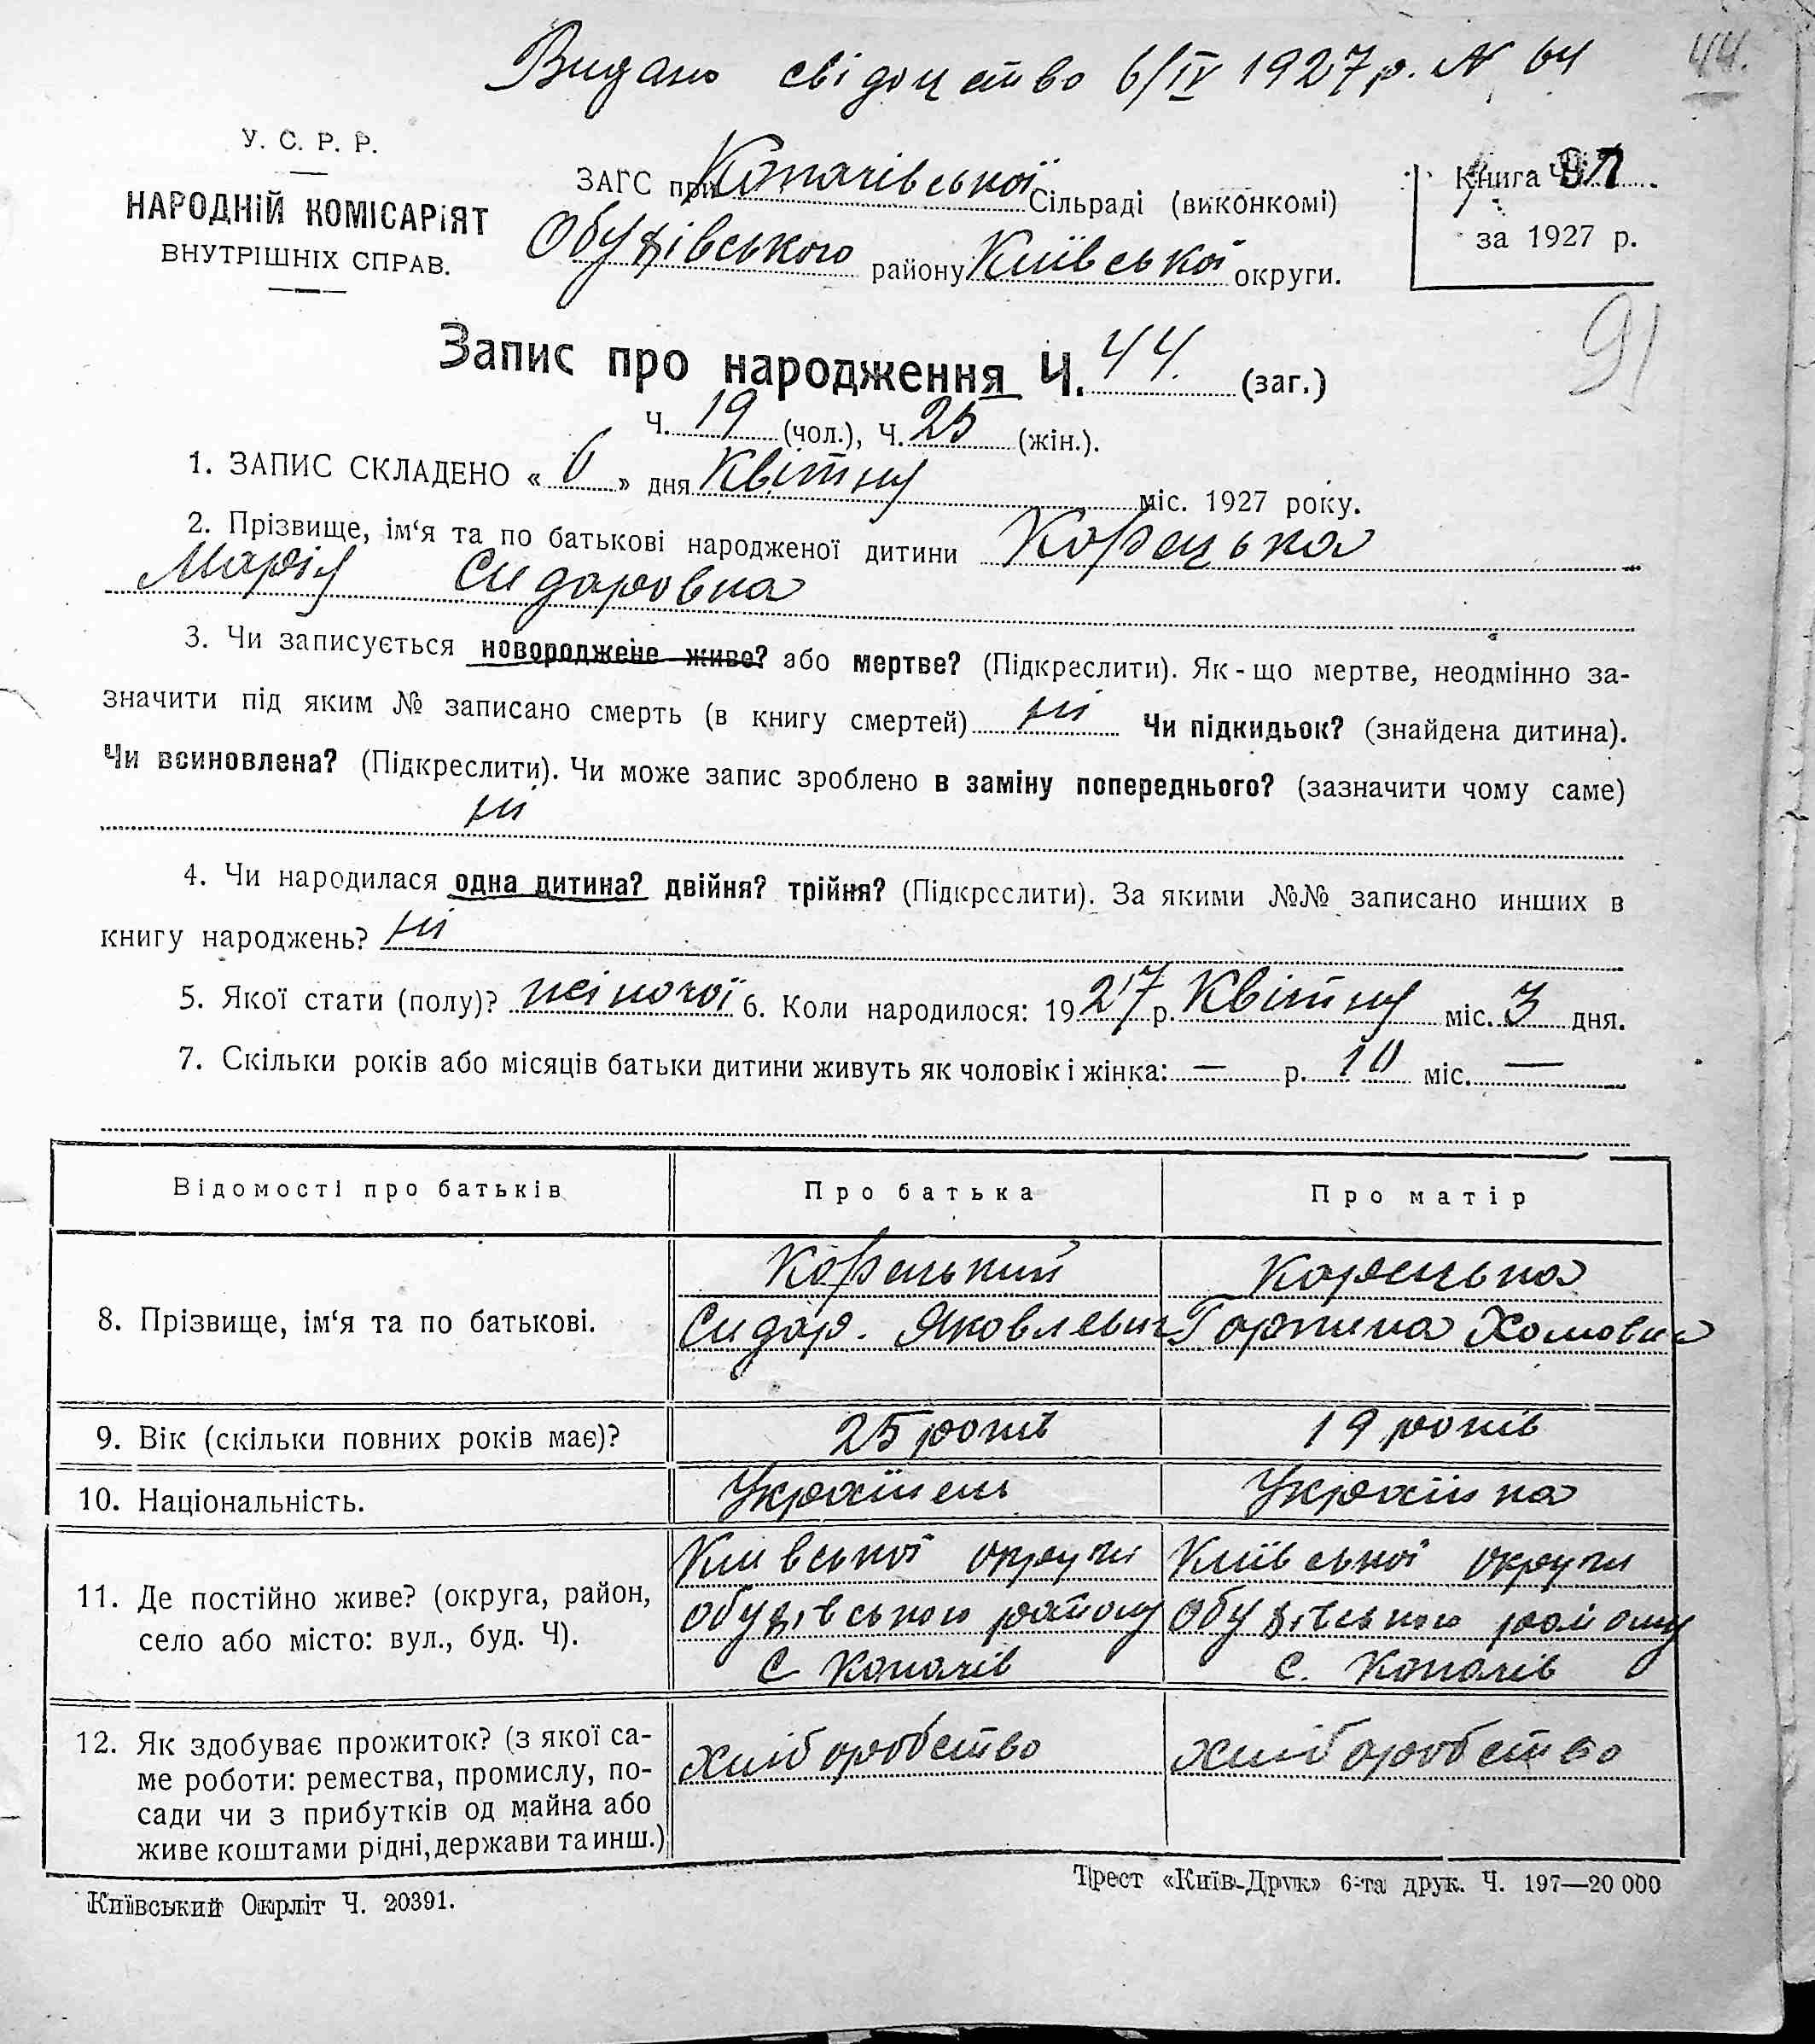 44.
Видано свідоцтво 6/IV 1927 р. № 64
У. С. Р. Р.
НАРОДНІЙ КОМІСАРІЯТ
ВНУТРІШНІХ СПРАВ.
ЗАГС при Копачівської Сільраді (виконкомі)
Обухівського району Київської округи.
Книга Ч.
за 1927 р.
91
Запис про народження Ч. 44. (заг.)
Ч. 19 (чол.), Ч. 25 (жін.).
1. ЗАПИС СКЛАДЕНО « 6 » дня Квітня міс. 1927 року.
2. Прізвище, ім‘я та по батькові народженої дитини Корецька
Марія Сидоровна
3. Чи записується новороджене живе? або мертве? (Підкреслити). Як-що мертве, неодмінно за-
значити під яким № записано смерть (в книгу смертей) ні Чи підкидьок? (знайдена дитина).
Чи всиновлена? (Підкреслити). Чи може запис зроблено в заміну попереднього? (зазначити чому саме)
ні
4. Чи народилася одна дитина? двійня? трійня? (Підкреслити). За якими №№ записано инших в
книгу народжень? ні
5. Якої стати (полу)? жіночої 6. Коли народилося: 1927 р. Квітня міс. 3 дня.
7. Скільки років або місяців батьки дитини живуть як чоловік і жінка: — р. 10 міс. —
Відомості про батьків Про батька Про матір
8. Прізвище, ім‘я та по батькові.
Корецький
Сидор. Яковлевич
Корецька
Горпина Хомовна
9. Вік (скільки повних років має)? 25 років 19 років
10. Національність. Українець Українка
11. Де постійно живе? (округа, район,
село або місто: вул., буд. Ч).
Киівської округи
Обухівського району
с Копачів
Київської округи
Обухівського району
с. Копачів
12. Як здобуває прожиток? (з якої са-
ме роботи: ремества, промислу, по-
сади чи з прибутків од майна або
живе коштами рідні, держави та инш.)
хліборобство
хліборобство
Київський Окрліт Ч. 20391.
Трест «Київ-Друк» 6-та друк. Ч. 197—20 000